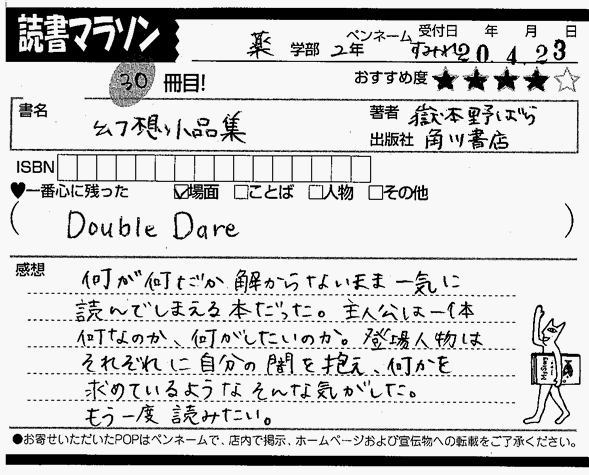 読書マラソン
薬 学部 2年 ペンネーム すみれ 受付日 年 月 日 20.4.23
30 冊目! おすすめ度 ★★★★☆
書名 幻想小品集 著者 嶽本野ばら
出版社 角川書店
ISBN
♥一番心に残った ☑場面 □ことば □人物 □その他
( Double Dare )
感想
何が何だか解からないまま一気に
読んでしまえる本だった。主人公は一体
何なのか、何がしたいのか。登場人物は
それぞれに自分の闇を抱え、何かを
求めているようなそんな気がした。
もう一度読みたい。
●お寄せいただいたPOPはペンネームで、店内で掲示、ホームページおよび宣伝物への転載をご了承ください。